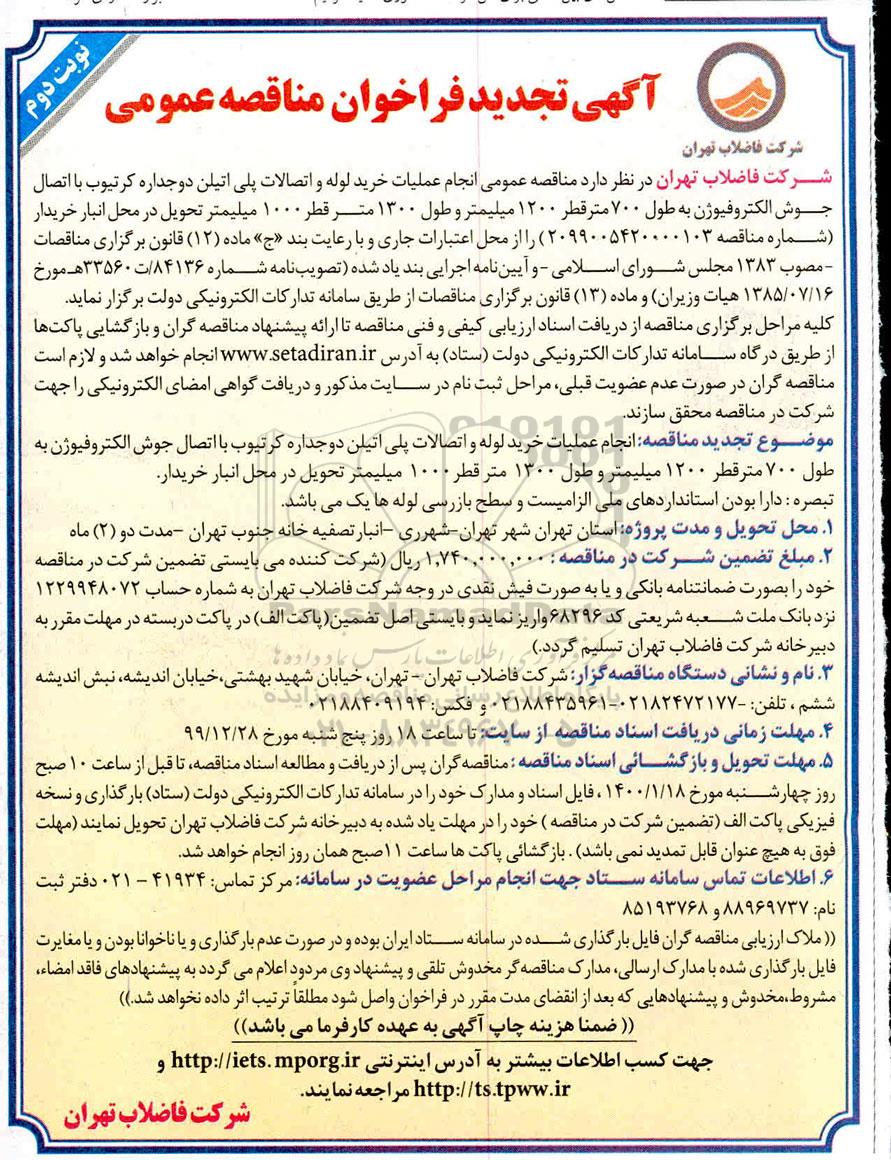 نوبت دوم
آگهی تجدید فراخوان مناقصه عمومی
شرکت فاضلاب تهران
شرکت فاضلاب تهران در نظر دارد مناقصه عمومی انجام عملیات خرید لوله و اتصالات پلی اتیلن دوجداره کرتیوب با اتصال
جوش الکتروفیوژن به طول ۷۰۰ متر قطر ۱۲۰۰ میلیمتر و طول ۱۳۰۰ متر قطر ۱۰۰۰ میلیمتر تحویل در محل انبار خریدار
(شماره مناقصه ۲۰۹۹۰۰۵۴۲۰۰۰۰۱۰۳) را از محل اعتبارات جاری و با رعایت بند «ج» ماده (۱۲) قانون برگزاری مناقصات
-مصوب ۱۳۸۳ مجلس شورای اسلامی -و آیین‌نامه اجرایی بند یاد شده (تصویب‌نامه شماره ۸۴۱۳۶/ت۳۳۵۶۰هـ مورخ
۱۳۸۵/۰۷/۱۶ هیات وزیران) و ماده (۱۳) قانون برگزاری مناقصات از طریق سامانه تدارکات الکترونیکی دولت برگزار نماید.
کلیه مراحل برگزاری مناقصه از دریافت اسناد ارزیابی کیفی و فنی مناقصه تا ارائه پیشنهاد مناقصه گران و بازگشایی پاکت‌ها
از طریق درگاه سامانه تدارکات الکترونیکی دولت (ستاد) به آدرس www.setadiran.ir انجام خواهد شد و لازم است
مناقصه گران در صورت عدم عضویت قبلی، مراحل ثبت نام در سایت مذکور و دریافت گواهی امضای الکترونیکی را جهت
شرکت در مناقصه محقق سازند.
موضوع تجدید مناقصه: انجام عملیات خرید لوله و اتصالات پلی اتیلن دوجداره کرتیوب با اتصال جوش الکتروفیوژن به
طول ۷۰۰ متر قطر ۱۲۰۰ میلیمتر و طول ۱۳۰۰ متر قطر ۱۰۰۰ میلیمتر تحویل در محل انبار خریدار.
تبصره : دارا بودن استانداردهای ملی الزامیست و سطح بازرسی لوله ها یک می باشد.
۱. محل تحویل و مدت پروژه: استان تهران شهر تهران-شهرری -انبار تصفیه خانه جنوب تهران -مدت دو (۲) ماه
۲. مبلغ تضمین شرکت در مناقصه : ۱,۷۴۰,۰۰۰,۰۰۰ ریال (شرکت کننده می بایستی تضمین شرکت در مناقصه
خود را بصورت ضمانتنامه بانکی و یا به صورت فیش نقدی در وجه شرکت فاضلاب تهران به شماره حساب ۱۲۲۹۹۴۸۰۷۲
نزد بانک ملت شعبه شریعتی کد ۶۸۲۹۶واریز نماید و بایستی اصل تضمین(پاکت الف) در پاکت دربسته در مهلت مقرر به
دبیرخانه شرکت فاضلاب تهران تسلیم گردد.)
۳. نام و نشانی دستگاه مناقصه‌گزار: شرکت فاضلاب تهران - تهران، خیابان شهید بهشتی،خیابان اندیشه، نبش اندیشه
ششم ، تلفن: -۰۲۱۸۲۴۷۲۱۷۷-۰۲۱۸۸۴۳۵۹۶۱ و فکس: ۰۲۱۸۸۴۰۹۱۹۴
۴. مهلت زمانی دریافت اسناد مناقصه از سایت: تا ساعت ۱۸ روز پنج شنبه مورخ ۹۹/۱۲/۲۸
۵. مهلت تحویل و بازگشائی اسناد مناقصه : مناقصه گران پس از دریافت و مطالعه اسناد مناقصه، تا قبل از ساعت ۱۰ صبح
روز چهارشنبه مورخ ۱۴۰۰/۱/۱۸ ، فایل اسناد و مدارک خود را در سامانه تدارکات الکترونیکی دولت (ستاد) بارگذاری و نسخه
فیزیکی پاکت الف (تضمین شرکت در مناقصه ) خود را در مهلت یاد شده به دبیرخانه شرکت فاضلاب تهران تحویل نمایند (مهلت
فوق به هیچ عنوان قابل تمدید نمی باشد) . بازگشائی پاکت ها ساعت ۱۱صبح همان روز انجام خواهد شد.
۶. اطلاعات تماس سامانه ستاد جهت انجام مراحل عضویت در سامانه: مرکز تماس: ۴۱۹۳۴ - ۰۲۱ دفتر ثبت
نام: ۸۸۹۶۹۷۳۷ و ۸۵۱۹۳۷۶۸
(( ملاک ارزیابی مناقصه گران فایل بارگذاری شده در سامانه ستاد ایران بوده و در صورت عدم بارگذاری و یا ناخوانا بودن و یا مغایرت
فایل بارگذاری شده با مدارک ارسالی، مدارک مناقصه‌گر مخدوش تلقی و پیشنهاد وی مردود اعلام می گردد به پیشنهادهای فاقد امضاء،
مشروط،مخدوش و پیشنهادهایی که بعد از انقضای مدت مقرر در فراخوان واصل شود مطلقاً ترتیب اثر داده نخواهد شد.))
(( ضمنا هزینه چاپ آگهی به عهده کارفرما می باشد))
جهت کسب اطلاعات بیشتر به آدرس اینترنتی http://iets.mporg.ir و
http://ts.tpww.ir مراجعه نمایند.
شرکت فاضلاب تهران